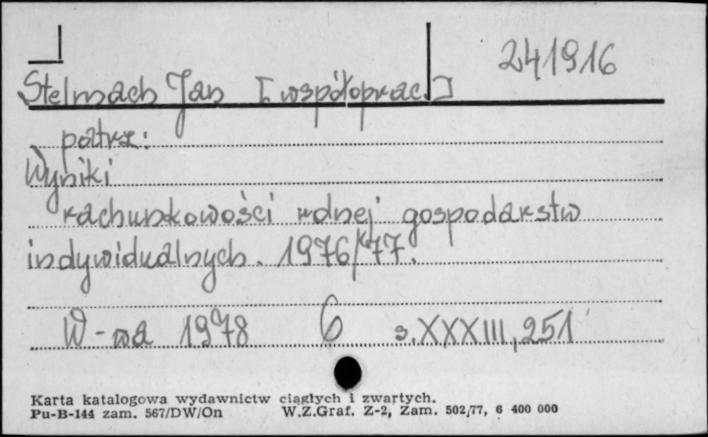 241916
Stelmach Jan [współoprac.]
patrz:
Wyniki
rachunkowości rolnej gospodarstw
indywidualnych. 1976/77.
W-wa 1978 6 s. XXXIII, 251
Karta katalogowa wydawnictw ciągłych i zwartych.
Pu-B-144 zam. 567/DW/On W.Z.Graf. Z-2, Zam. 502/77, 6 400 000